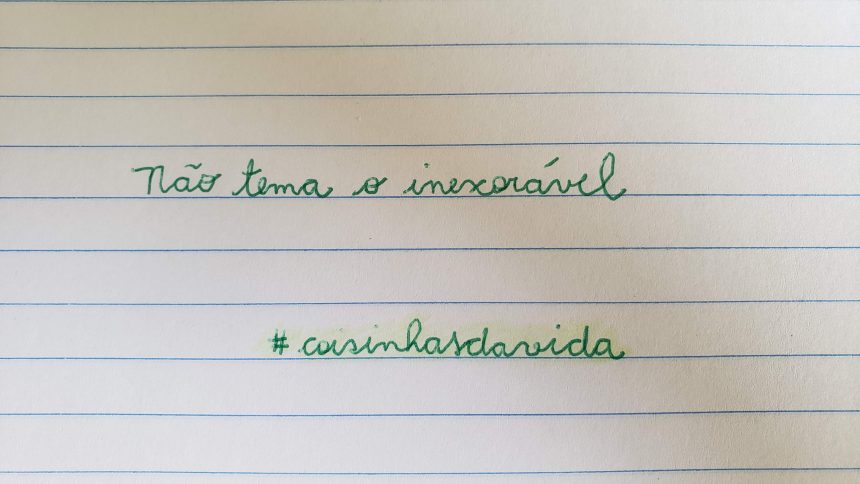 Não tema o inexorável
#coisinhasdavida